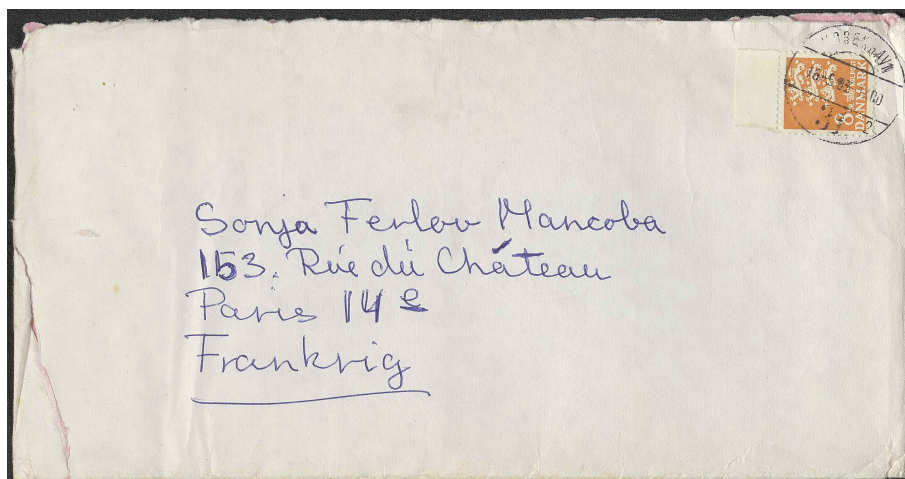 KØBENHAVN
DANMARK
Sonja Ferlov Mancoba
153. Rue du Château
Paris 14e
Frankrig